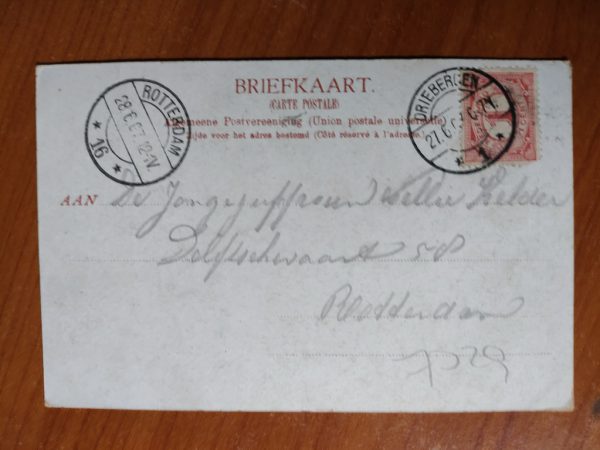 BRIEFKAART.
(CARTE POSTALE)
Algemeene Postvereeniging (Union postale universelle)
Zijde voor het adres bestemd (Côté réservé à l'adresse)
ROTTERDAM
28.6.07 12-1V.
16
DRIEBERGEN
27.6.
1
AAN De Jongejuffrouw Nellie Helder
Delftschevaart 58
Rotterdam